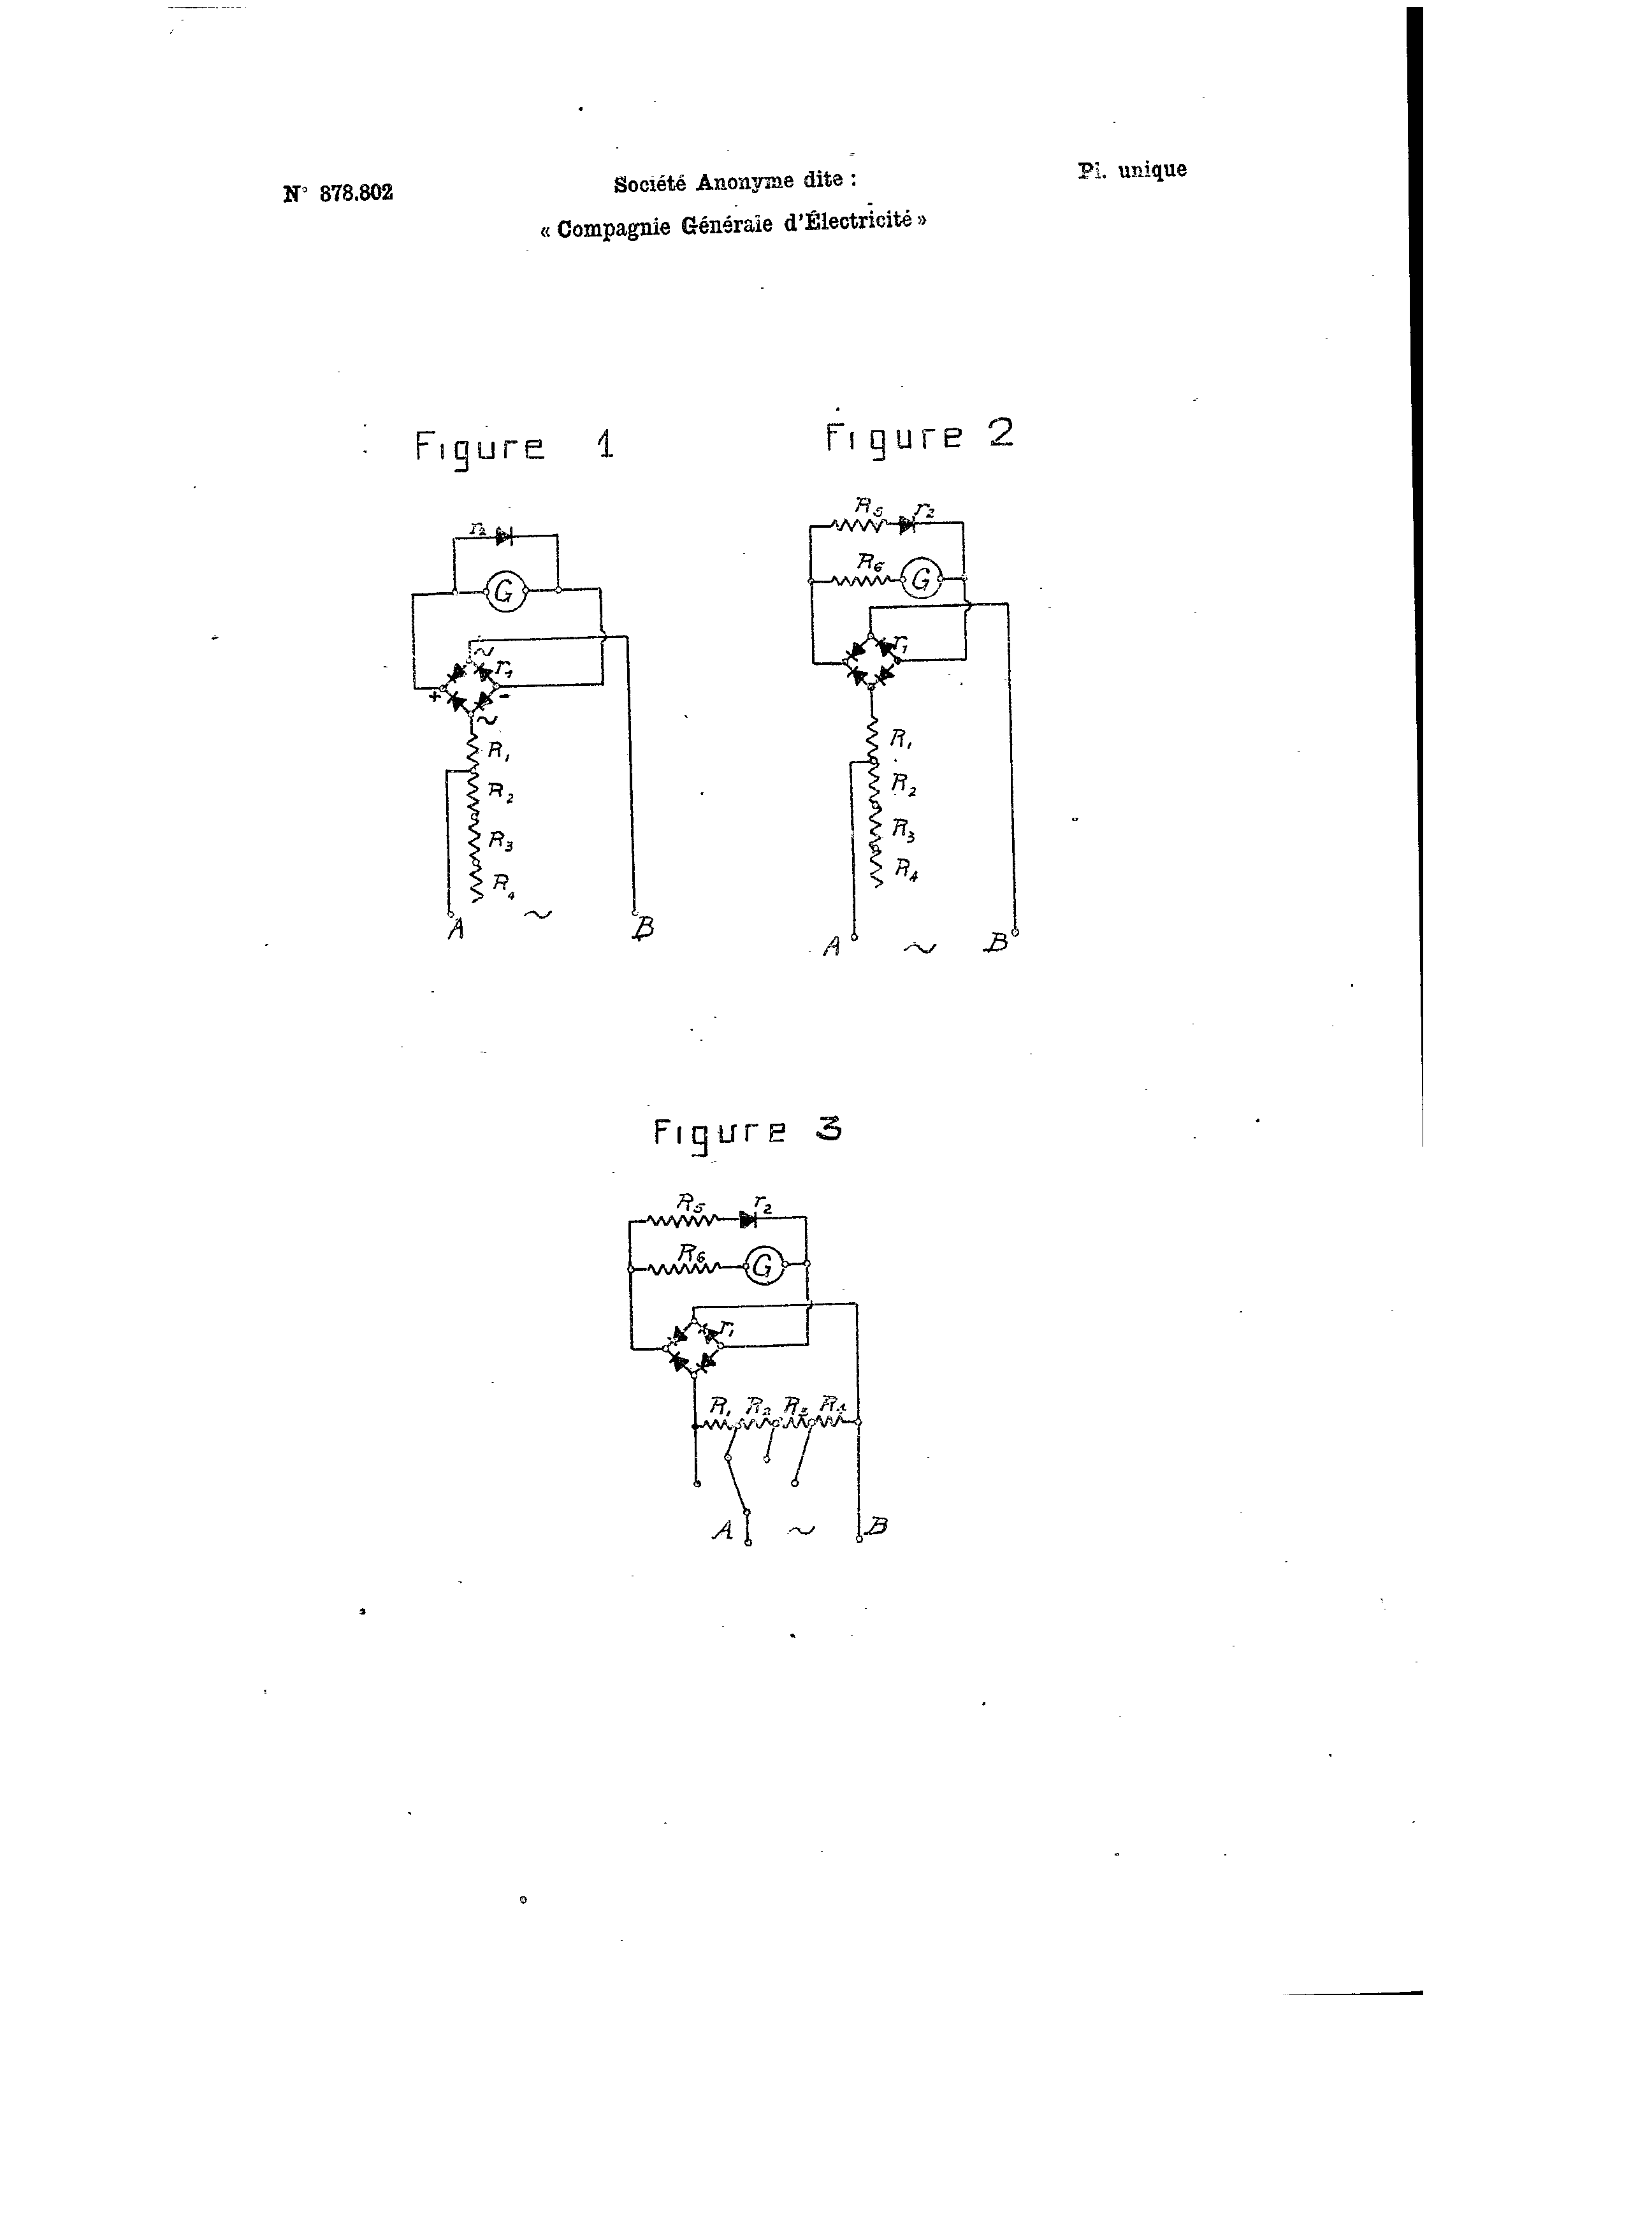 N° 878.802
Société Anonyme dite :
Pl. unique
« Compagnie Générale d'Électricité »
Figure 1
r2
G
~
r1
+
-
~
R1
R2
R3
R4
A
~
B
Figure 2
R5
r2
R6
G
r1
R1
R2
R3
R4
A
~
B
Figure 3
R5
r2
R6
G
r1
R1 R2 R3 R4
A
~
B